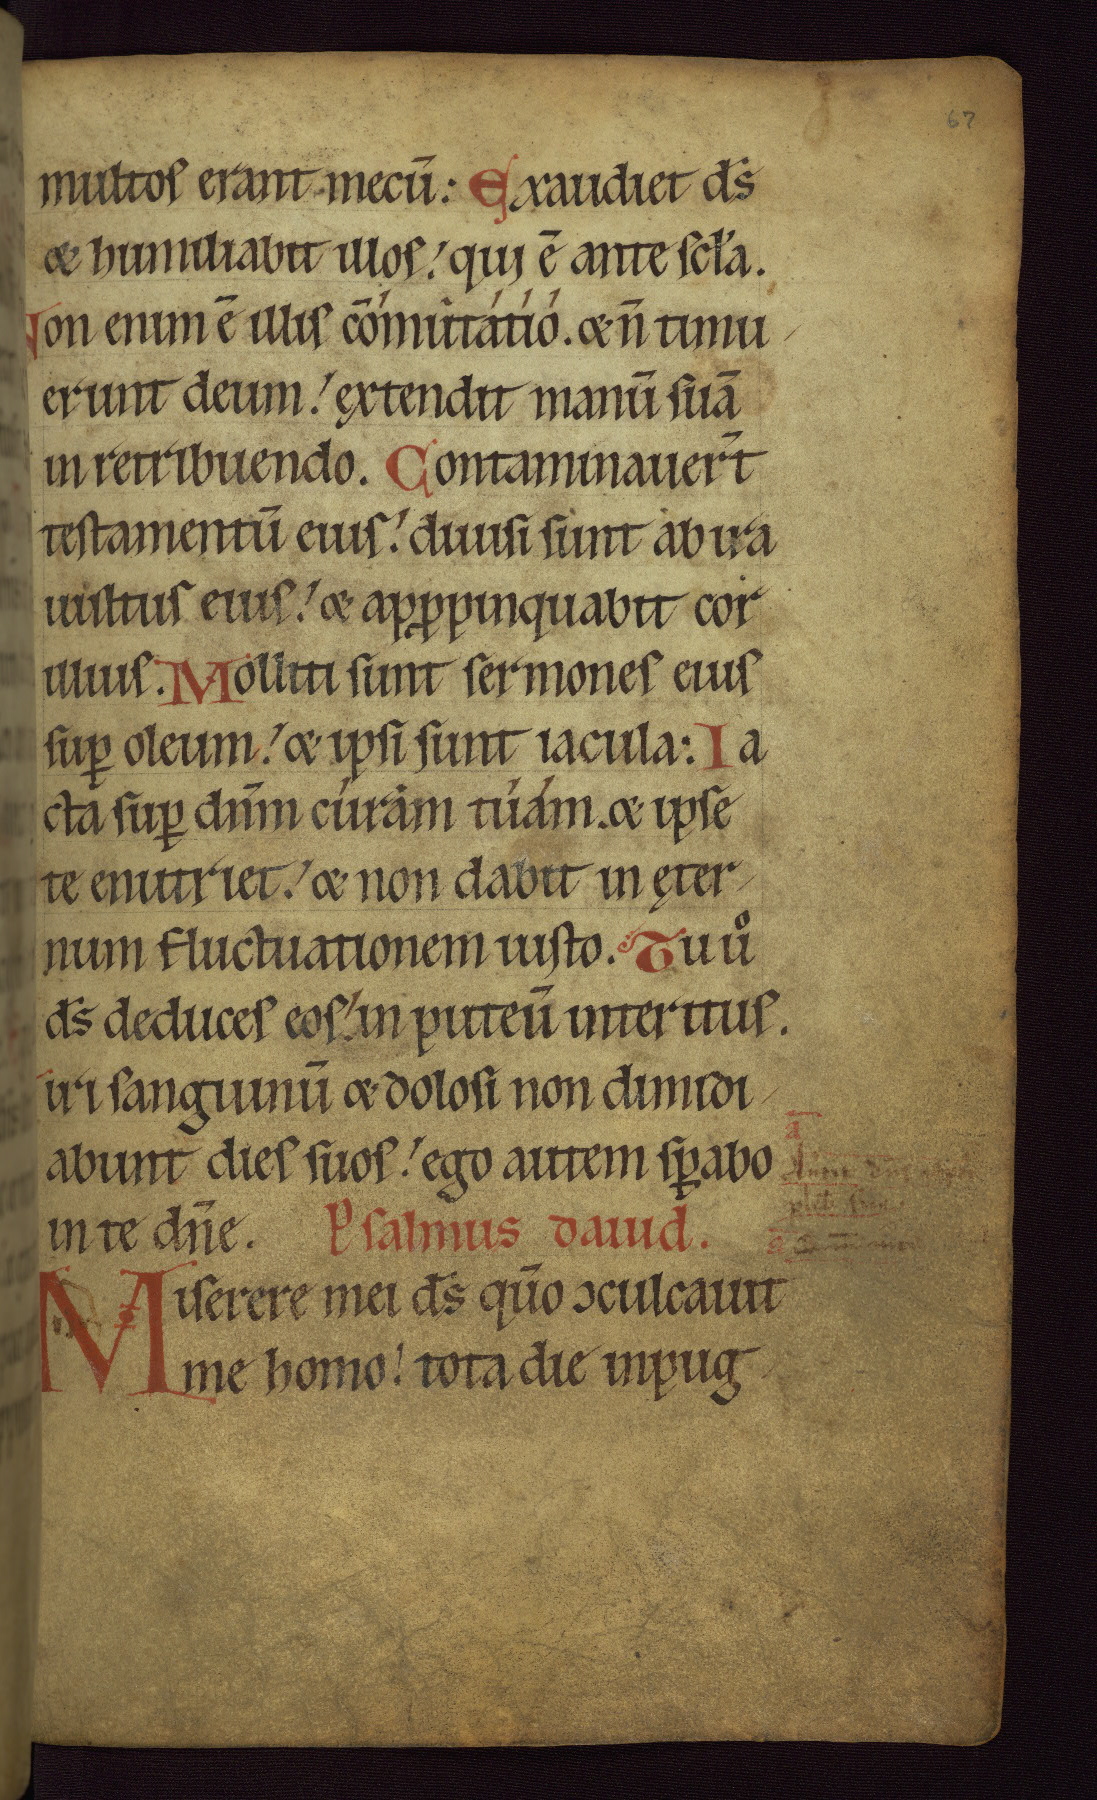 67
multos erant mecū: Exaudiet d̄s
⁊ humiliabit illos! qui ē ante sc̄l̄a.
Non enim ē illis cōmutatio. ⁊ n̄ timu
erunt deum! ęxtendit manū suā
in retribuendo. Contaminauer̄t
testamentū eius! diuisi sunt ab ira
uultus eius! ⁊ apꝓpinquabit cor
illius. Molliti sunt sermones eius
suꝑ oleum! ⁊ ipsi sunt iacula: Ia
cta suꝑ dn̄m curam tuam. ⁊ ipse
te enutriet! ⁊ non dabit in ęter
num fluctuationem iusto. Tu uͦ
d̄s deduces eos! in puteū interitus.
uiri sanguinū ⁊ dolosi non dimidi
abunt dies suos! ego autem sꝑabo
in te dn̄e. Psalmus dauid.
Miserere mei d̄s qūo ↄculcauit
me homo! tota die inpug